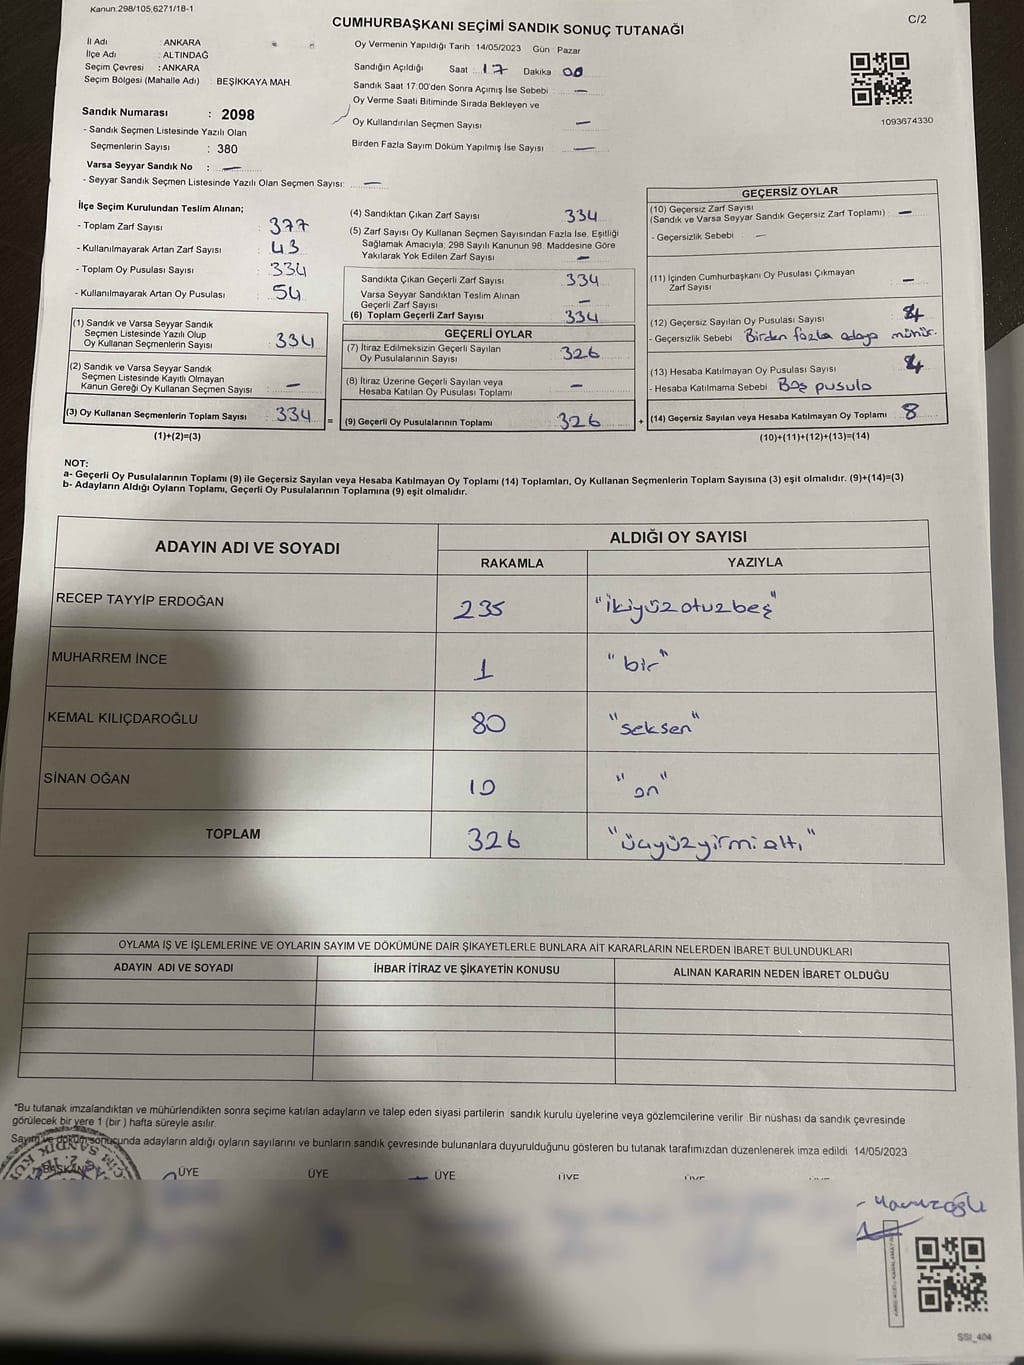 Kanun:298/105,6271/18-1
CUMHURBAŞKANI SEÇİMİ SANDIK SONUÇ TUTANAĞI
C/2
İl Adı : ANKARA
İlçe Adı : ALTINDAĞ
Seçim Çevresi : ANKARA
Seçim Bölgesi (Mahalle Adı) BEŞİKKAYA MAH.
Oy Vermenin Yapıldığı Tarih 14/05/2023 Gün : Pazar
Sandığın Açıldığı Saat : 17 Dakika 00
Sandık Saat 17:00'den Sonra Açmış İse Sebebi : —
Oy Verme Saati Bitiminde Sırada Bekleyen ve
Oy Kullandırılan Seçmen Sayısı —
Birden Fazla Sayım Döküm Yapılmış İse Sayısı —
1093674330
Sandık Numarası : 2098
- Sandık Seçmen Listesinde Yazılı Olan
Seçmenlerin Sayısı : 380
Varsa Seyyar Sandık No : —
- Seyyar Sandık Seçmen Listesinde Yazılı Olan Seçmen Sayısı: —
İlçe Seçim Kurulundan Teslim Alınan;
- Toplam Zarf Sayısı : 377
- Kullanılmayarak Artan Zarf Sayısı : 43
- Toplam Oy Pusulası Sayısı : 334
- Kullanılmayarak Artan Oy Pusulası : 54
(1) Sandık ve Varsa Seyyar Sandık
Seçmen Listesinde Yazılı Olup
Oy Kullanan Seçmenlerin Sayısı : 334
(2) Sandık ve Varsa Seyyar Sandık
Seçmen Listesinde Kayıtlı Olmayan
Kanun Gereği Oy Kullanan Seçmen Sayısı : —
(3) Oy Kullanan Seçmenlerin Toplam Sayısı : 334
(1)+(2)=(3)
(4) Sandıktan Çıkan Zarf Sayısı 334
(5) Zarf Sayısı Oy Kullanan Seçmen Sayısından Fazla İse, Eşitliği
Sağlamak Amacıyla; 298 Sayılı Kanunun 98. Maddesine Göre
Yakılarak Yok Edilen Zarf Sayısı —
Sandıkta Çıkan Geçerli Zarf Sayısı 334
Varsa Seyyar Sandıktan Teslim Alınan
Geçerli Zarf Sayısı —
(6) Toplam Geçerli Zarf Sayısı 334
GEÇERLİ OYLAR
(7) İtiraz Edilmeksizin Geçerli Sayılan
Oy Pusulalarının Sayısı 326
(8) İtiraz Üzerine Geçerli Sayılan veya
Hesaba Katılan Oy Pusulası Toplamı —
= (9) Geçerli Oy Pusulalarının Toplamı 326 +
GEÇERSİZ OYLAR
(10) Geçersiz Zarf Sayısı
(Sandık ve Varsa Seyyar Sandık Geçersiz Zarf Toplamı) —
- Geçersizlik Sebebi : —
(11) İçinden Cumhurbaşkanı Oy Pusulası Çıkmayan
Zarf Sayısı —
(12) Geçersiz Sayılan Oy Pusulası Sayısı : 4
- Geçersizlik Sebebi Birden fazla adaya mühür.
(13) Hesaba Katılmayan Oy Pusulası Sayısı : 4
- Hesaba Katılmama Sebebi Boş pusula
(14) Geçersiz Sayılan veya Hesaba Katılmayan Oy Toplamı 8
(10)+(11)+(12)+(13)=(14)
NOT:
a- Geçerli Oy Pusulalarının Toplamı (9) ile Geçersiz Sayılan veya Hesaba Katılmayan Oy Toplamı (14) Toplamları, Oy Kullanan Seçmenlerin Toplam Sayısına (3) eşit olmalıdır. (9)+(14)=(3)
b- Adayların Aldığı Oyların Toplamı, Geçerli Oy Pusulalarının Toplamına (9) eşit olmalıdır.
ADAYIN ADI VE SOYADI
ALDIĞI OY SAYISI
RAKAMLA YAZIYLA
RECEP TAYYİP ERDOĞAN 235 "ikiyüzotuzbeş"
MUHARREM İNCE 1 "bir"
KEMAL KILIÇDAROĞLU 80 "seksen"
SİNAN OĞAN 10 "on"
TOPLAM 326 "üçyüzyirmialtı"
OYLAMA İŞ VE İŞLEMLERİNE VE OYLARIN SAYIM VE DÖKÜMÜNE DAİR ŞİKAYETLERLE BUNLARA AİT KARARLARIN NELERDEN İBARET BULUNDUKLARI
ADAYIN ADI VE SOYADI İHBAR İTİRAZ VE ŞİKAYETİN KONUSU ALINAN KARARIN NEDEN İBARET OLDUĞU
*Bu tutanak imzalandıktan ve mühürlendikten sonra seçime katılan adayların ve talep eden siyasi partilerin sandık kurulu üyelerine veya gözlemcilerine verilir. Bir nüshası da sandık çevresinde
görülecek bir yere 1 (bir ) hafta süreyle asılır.
Sayım ve döküm sonucunda adayların aldığı oyların sayılarını ve bunların sandık çevresinde bulunanlara duyurulduğunu gösteren bu tutanak tarafımızdan düzenlenerek imza edildi. 14/05/2023
BAŞKAN ÜYE ÜYE ÜYE ÜYE ÜYE
SSI_404